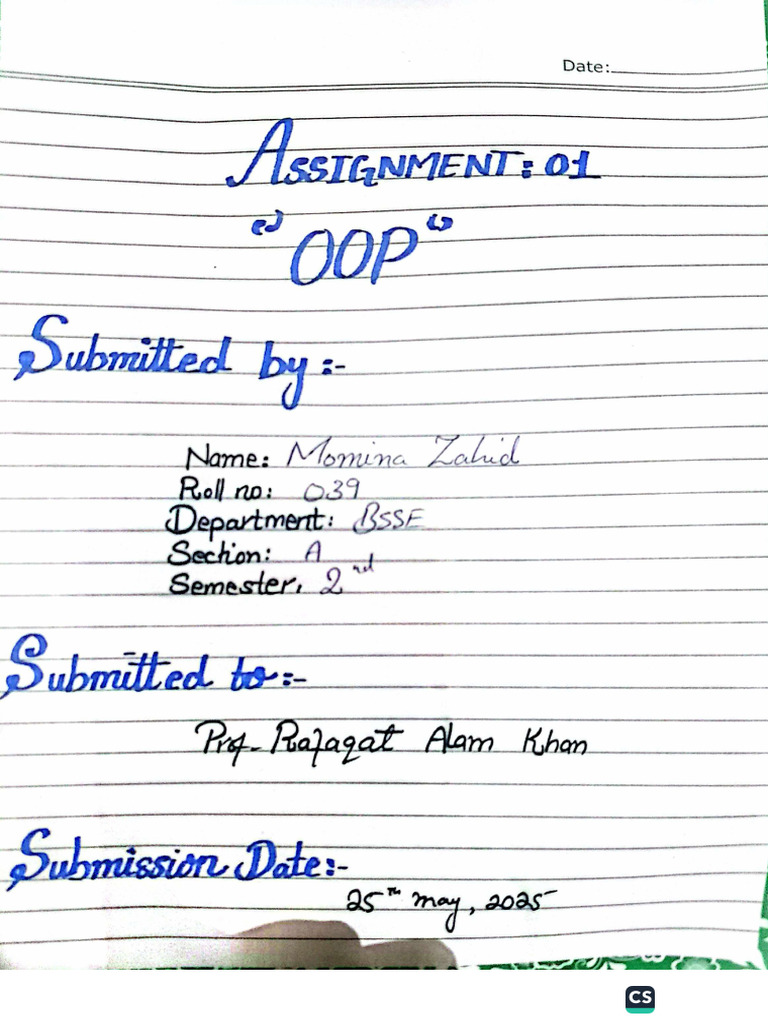 Date:
ASSIGNMENT: 01
"OOP"
Submitted by :-
Name: Momina Zahid
Roll no: 039
Department: BSSE
Section: A
Semester. 2nd
Submitted to:-
Prof. Rafaqat Alam Khan
Submission Date:-
25th may, 2025
CS